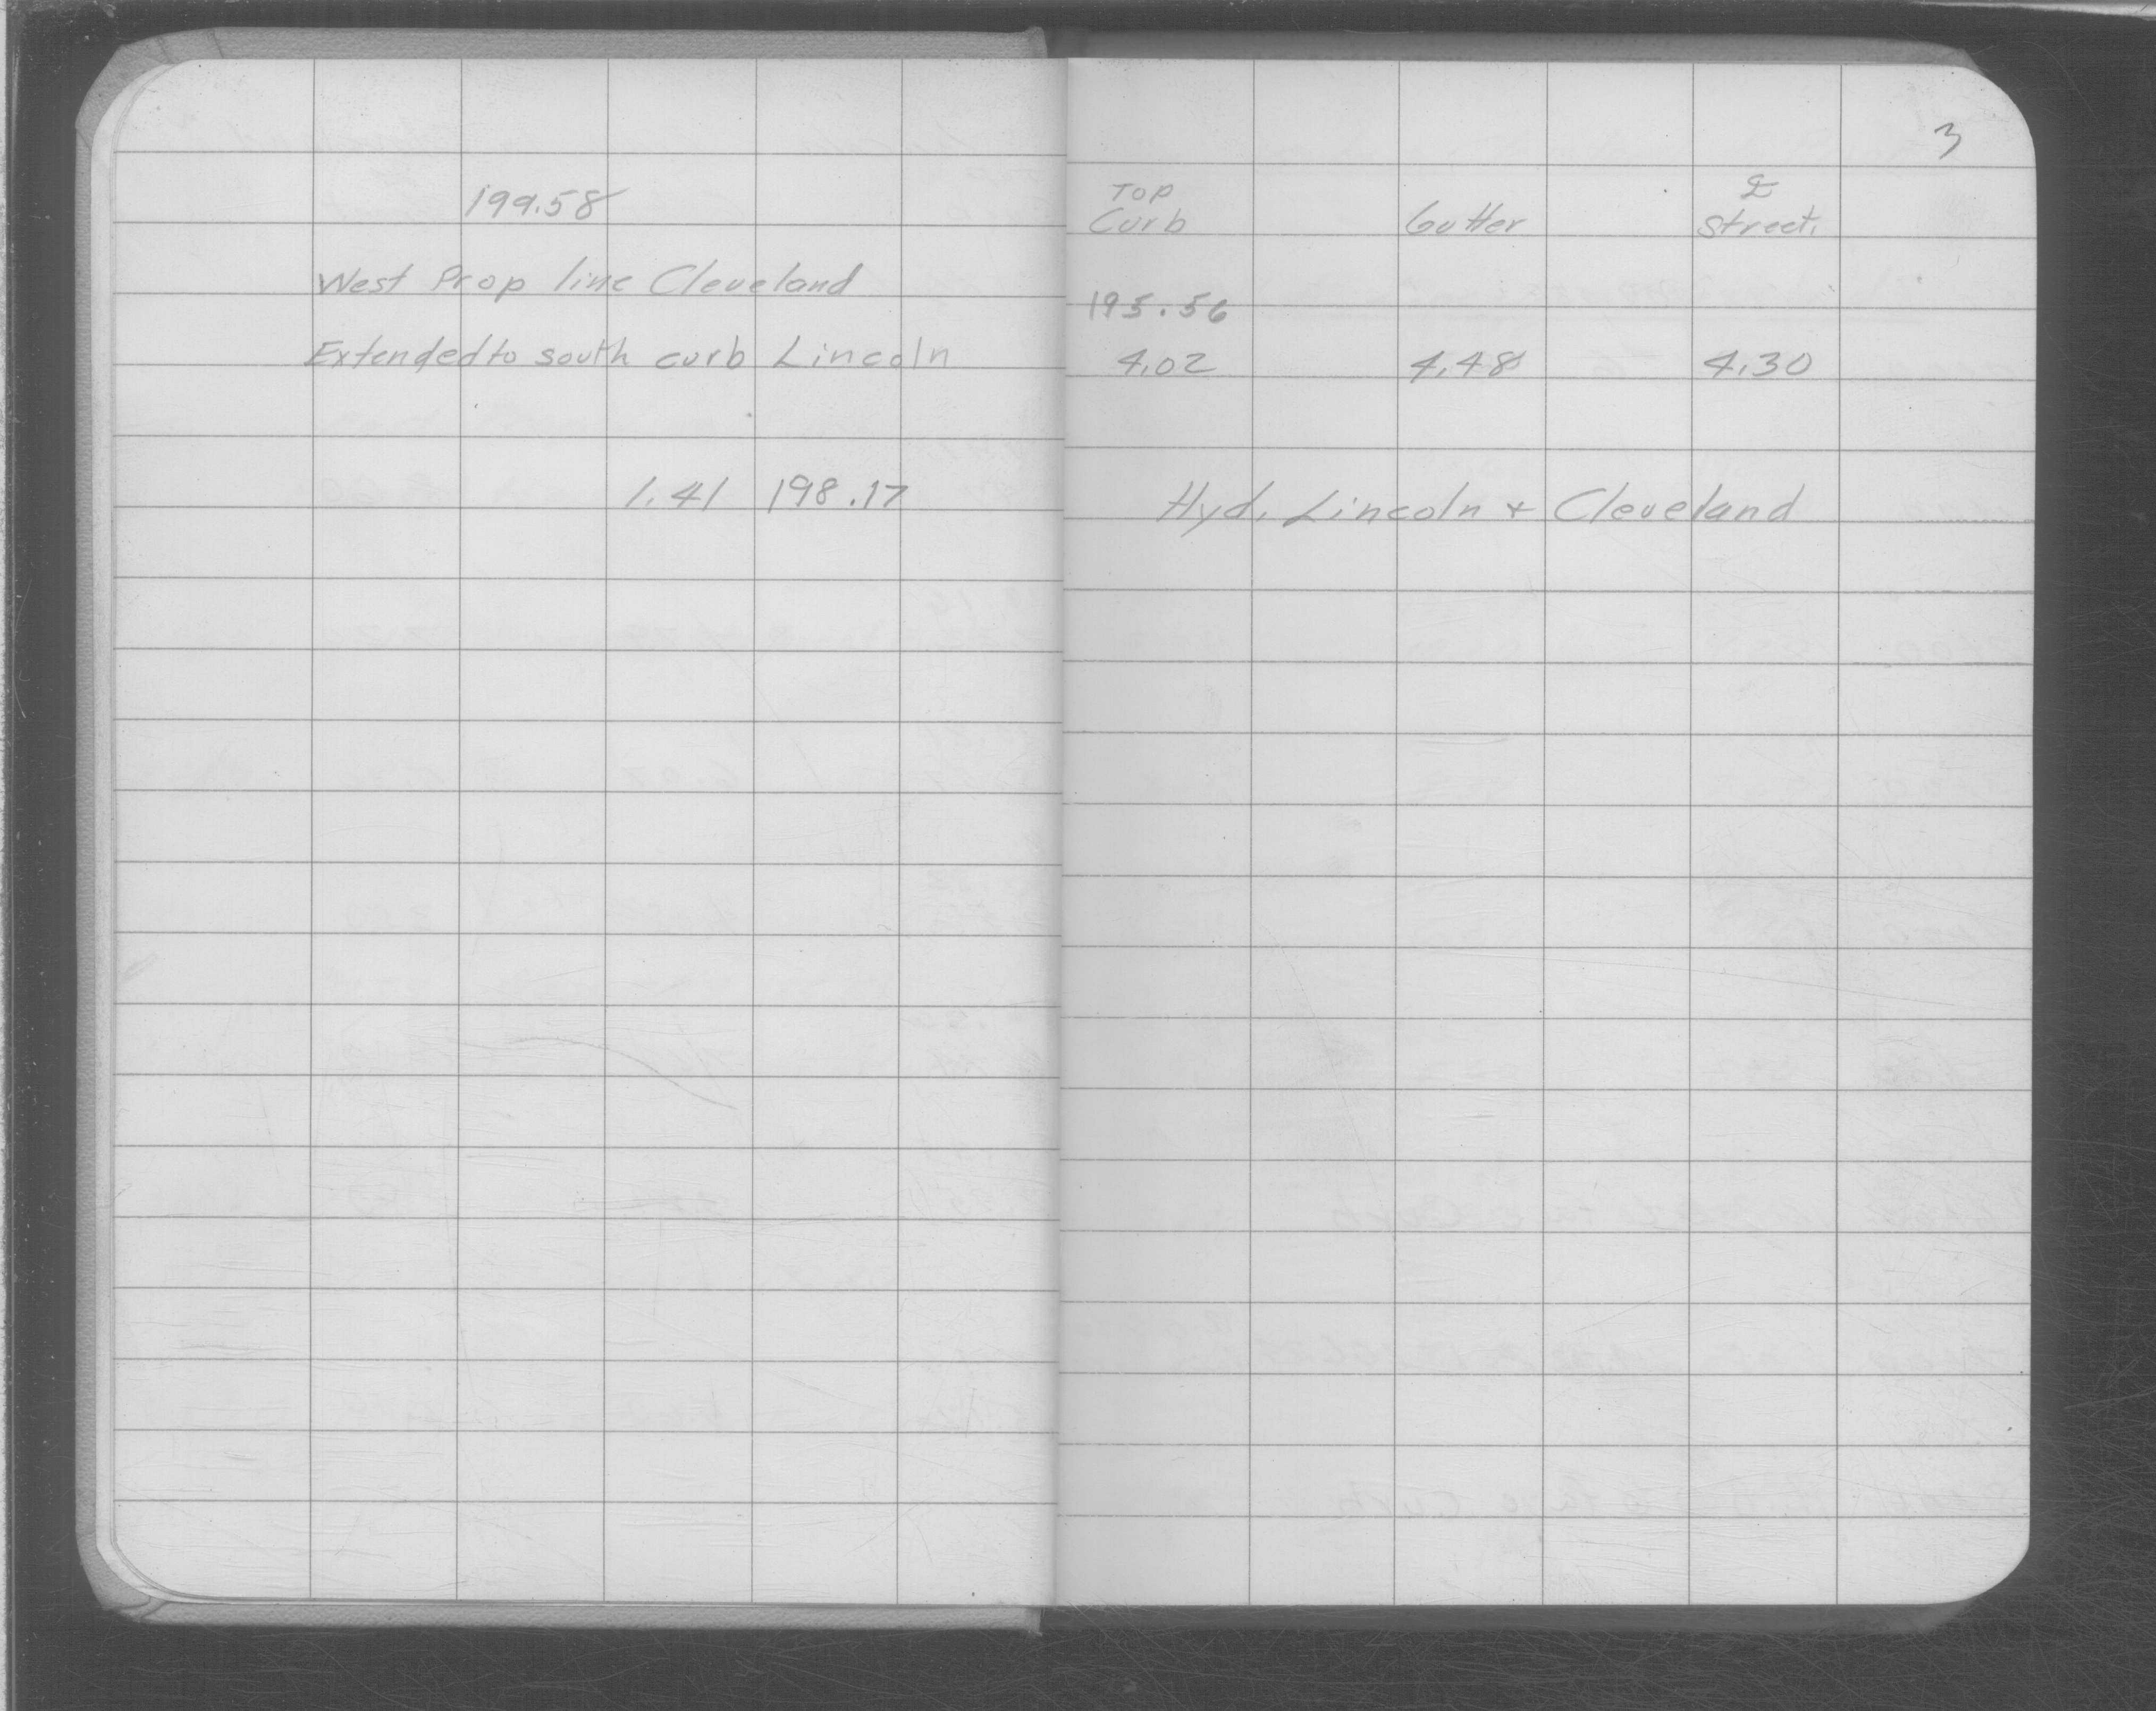 199.58
West Prop line Cleveland
Extended to south curb Lincoln
1.41 198.17
3
Top
Curb Gutter ℄ Street.
195.56
4.02 4.48 4.30
Hyd. Lincoln + Cleveland